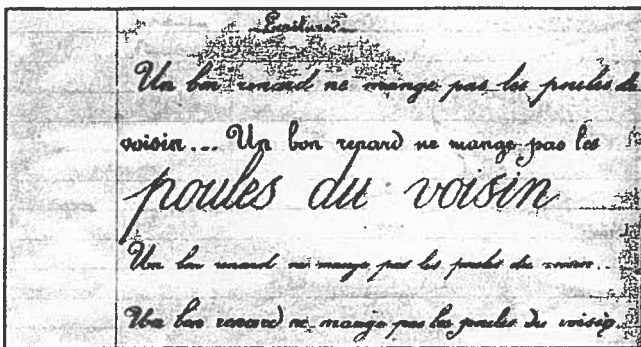 Ecriture
Un bon renard ne mange pas les poules du
voisin... Un bon renard ne mange pas les
poules du voisin
Un bon renard ne mange pas les poules du voisin..
Un bon renard ne mange pas les poules du voisin.